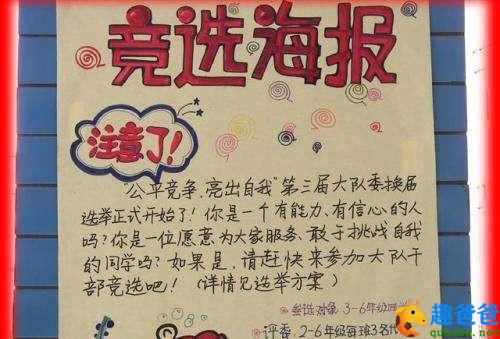 竞选海报
注意了!
“公平竞争,亮出自我”第三届大队委换届
选举正式开始了!你是一个有能力、有信心的人
吗?你是一位愿意为大家服务、敢于挑战自我
的同学吗?如果是,请赶快来参加大队干
部竞选吧!(详情见选举方案)
参选对象 3-6年级
评委 2-6年级每班3名
趣爸爸
qubaba.net